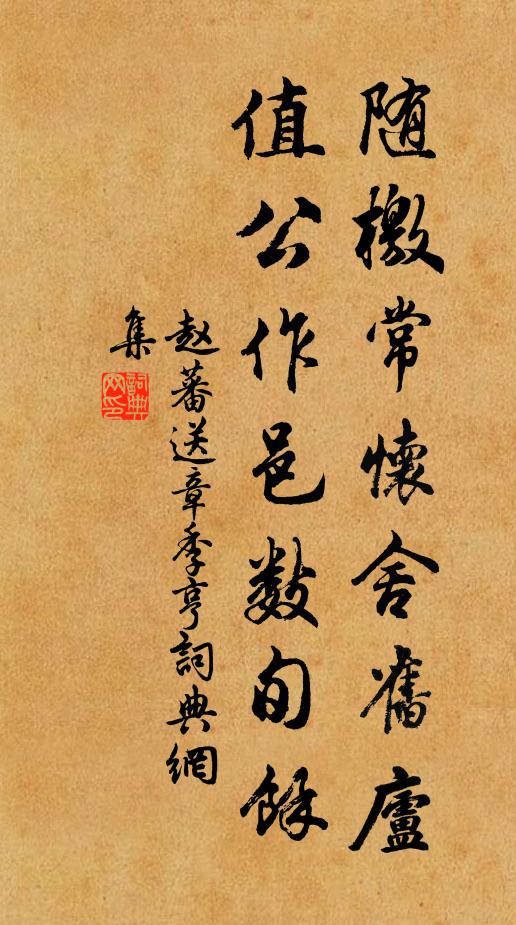 随檄常懷舍舊廬
值公作邑数旬餘
赵蕃送章季亨詞典網
集
詞典
网印